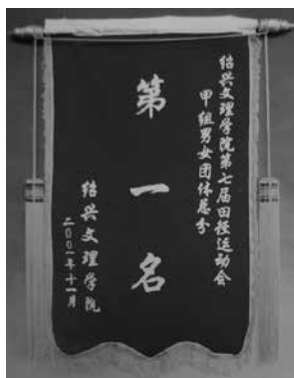 绍兴文理学院第七届田径运动会
甲组男女团体总分
第一名
绍兴文理学院
二00一年十一月